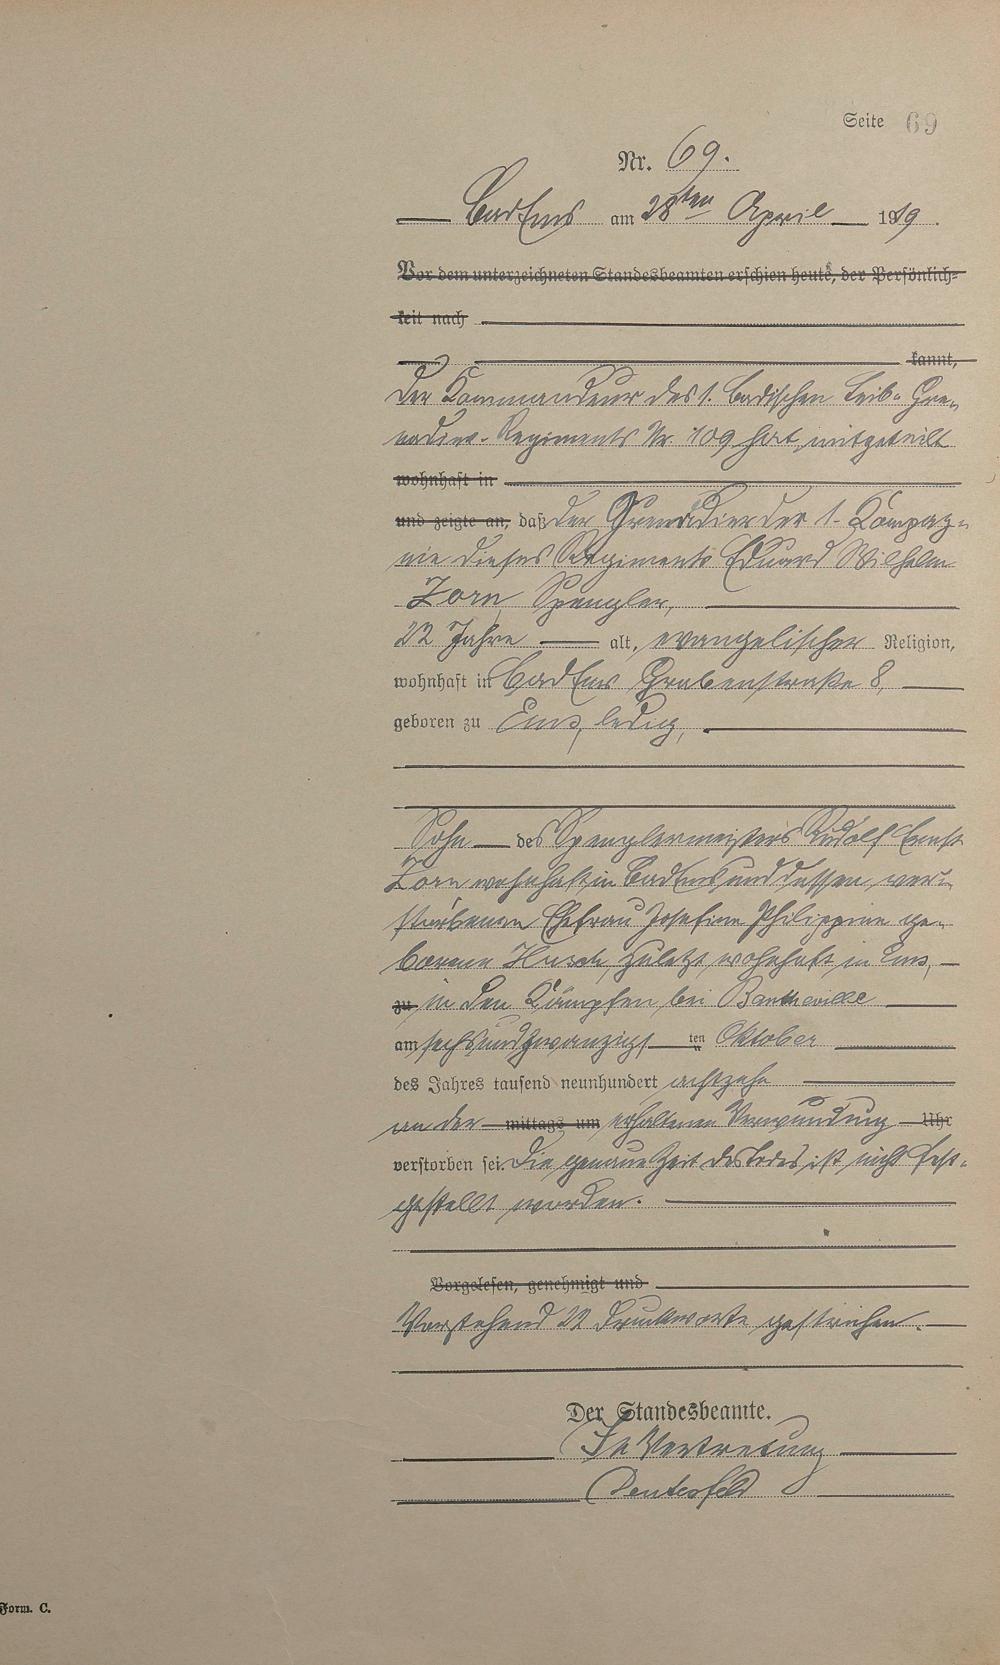 Seite 69
Nr. 69.
Bad Ems am 28ten April 1919.
Vor dem unterzeichneten Standesbeamten erschien heute, der Persönlich-
keit nach
kannt,
Der Kommandeur des 1. Badischen Leib- Gre-
nadier-Regiments Nr. 109 hat mitgeteilt
wohnhaft in
und zeigte an, daß der Grenadier der 1. Kompag-
nie dieses Regiments Eduard Wilhelm
Zorn, Spengler,
22 Jahre alt, evangelischer Religion,
wohnhaft in Bad Ems Grabenstraße 8,
geboren zu Ems, ledig,
Sohn des Spenglermeisters Rudolf Ernst
Zorn wohnhaft in Bad Ems und dessen ver-
storbenen Ehefrau Josefine Philippine ge-
borene zuletzt wohnhaft in Ems,
zu in den Kämpfen bei Bantheville
am sechsundzwanzigsten Oktober
des Jahres tausend neunhundert achtzehn
an der mittags um erhaltenen Verwundung Uhr
verstorben sei. Die genaue Zeit des Todes ist nicht fest-
gestellt worden.
Vorgelesen, genehmigt und
Vorstehend 22 Druckworte gestrichen.
Der Standesbeamte.
In Vertretung
Form. C.